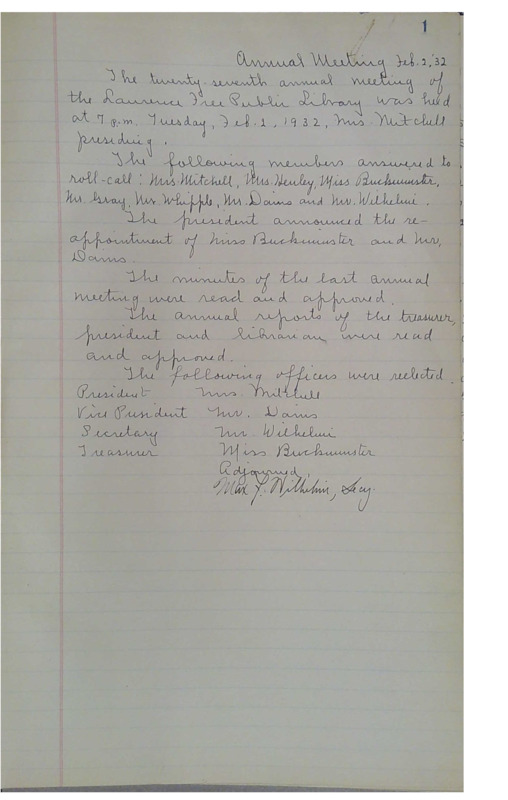 1
Annual Meeting Feb. 2, '32
The twenty-seventh annual meeting of
the Lawrence Free Public Library was held
at 7 p.m. Tuesday, Feb. 2, 1932, Mrs. Mitchell
presiding.
The following members answered to
roll-call: Mrs Mitchell, Mrs. Henley, Miss Buckminster,
Mr. Gray, Mr. Whipple, Mr. Dains and Mr. Wilhelmi.
The president announced the re-
appointment of Miss Buckminster and Mr.
Dains.
The minutes of the last annual
meeting were read and approved.
The annual reports of the treasurer,
president and librarian were read
and approved.
The following officers were relected.
President Mrs. Mitchell
Vice President Mr. Dains
Secretary Mr. Wilhelmi
Treasurer Miss Buckminster
Adjourned.
Max Wilhelmi, Secy.